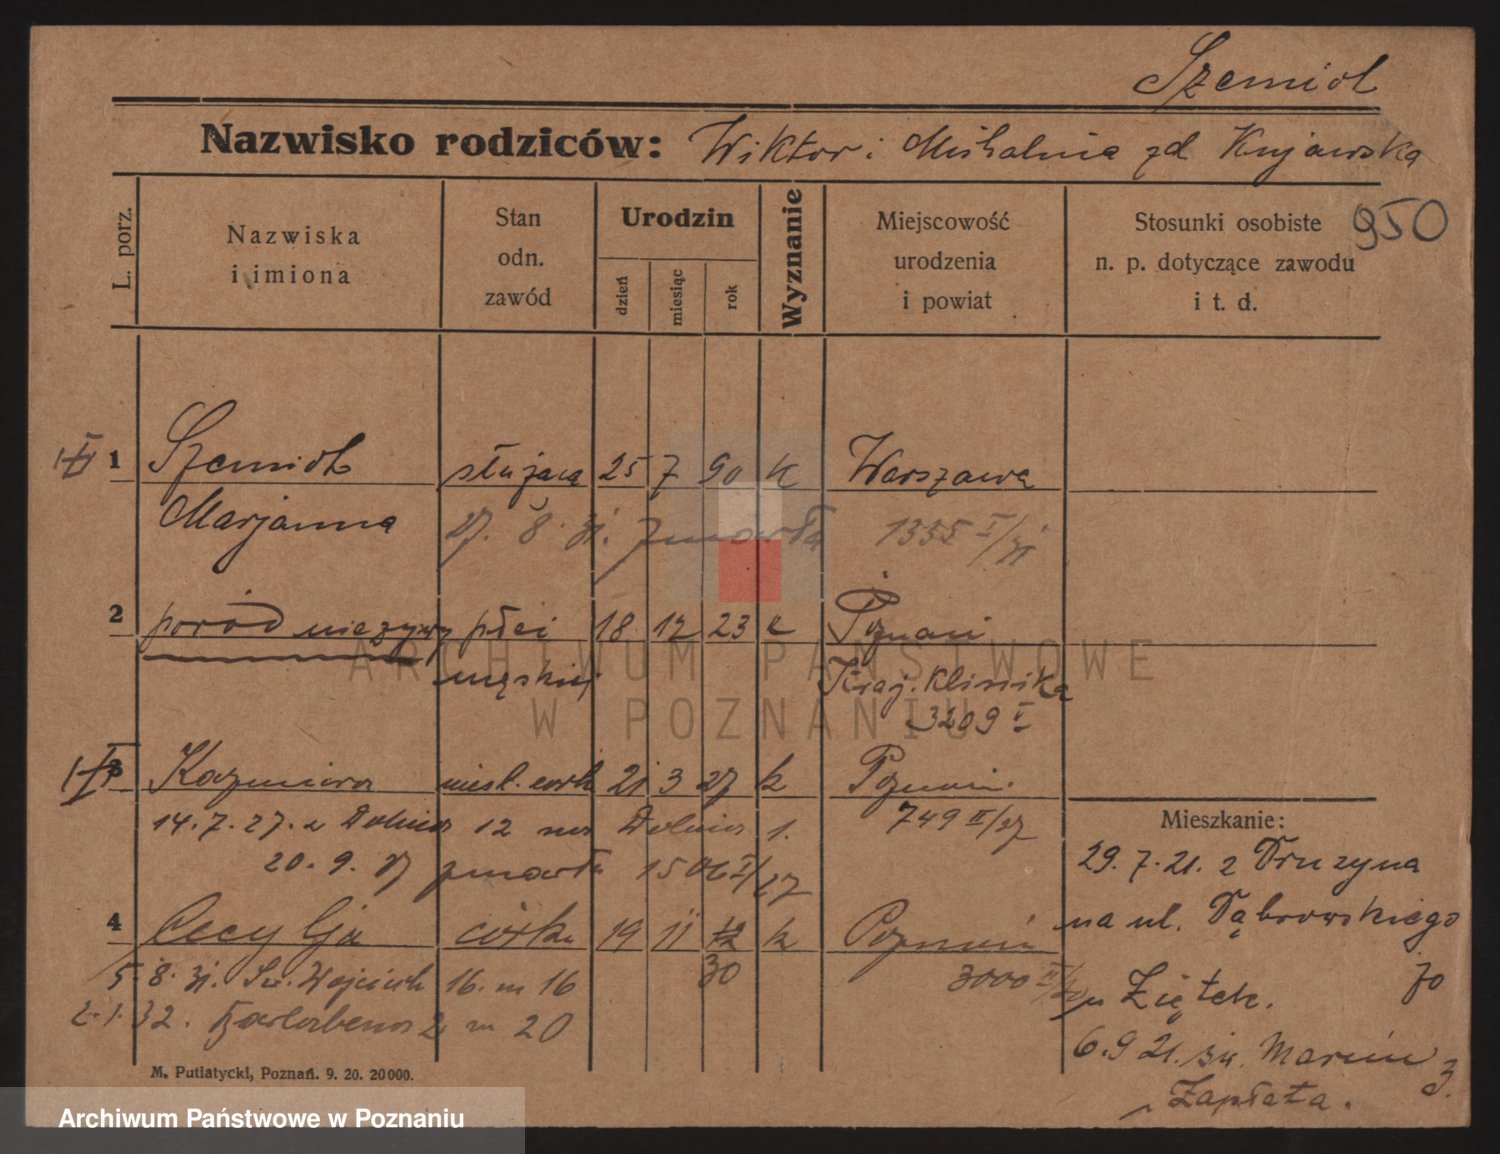 Szemiot
Nazwisko rodziców: Wiktor i Michalina zd Kujawska
950
L. porz.
Nazwiska
i imiona
Stan
odn.
zawód
Urodzin
dzień
miesiąc
rok
Wyznanie
Miejscowość
urodzenia
i powiat
Stosunki osobiste
n. p. dotyczące zawodu
i t. d.
1 Szemiot służąca 25 7 90 k Warszawa
Marjanna 27. 8. 31. zmarła 1355 I/31
2 poród nieżywy płci 18 12 23 e Poznań
męskiej Kraj. Klinika
3209 V
3 Kazmiera nieśl. córk 21 3 27 k Poznań.
14. 7. 27. z Dolnice 12 na Dolnice 1. 749 II/27
20. 9. 27 zmarła 1506 I/27
4 Cecylja córka 19 11 12 k Poznań
30 3000 II/30
5. 8. 31. Św. Wojciech 16. m 16
2. 1. 32. m 20
Mieszkanie:
29. 7. 21. z Drużyna
na ul. Dąbrowskiego
70
u Ziętek.
6. 9 21. św. Marcin 3.
Zapłata.
M. Putiatycki, Poznań. 9. 20. 20000.
ARCHIWUM PAŃSTWOWE
W POZNANIU
Archiwum Państwowe w Poznaniu